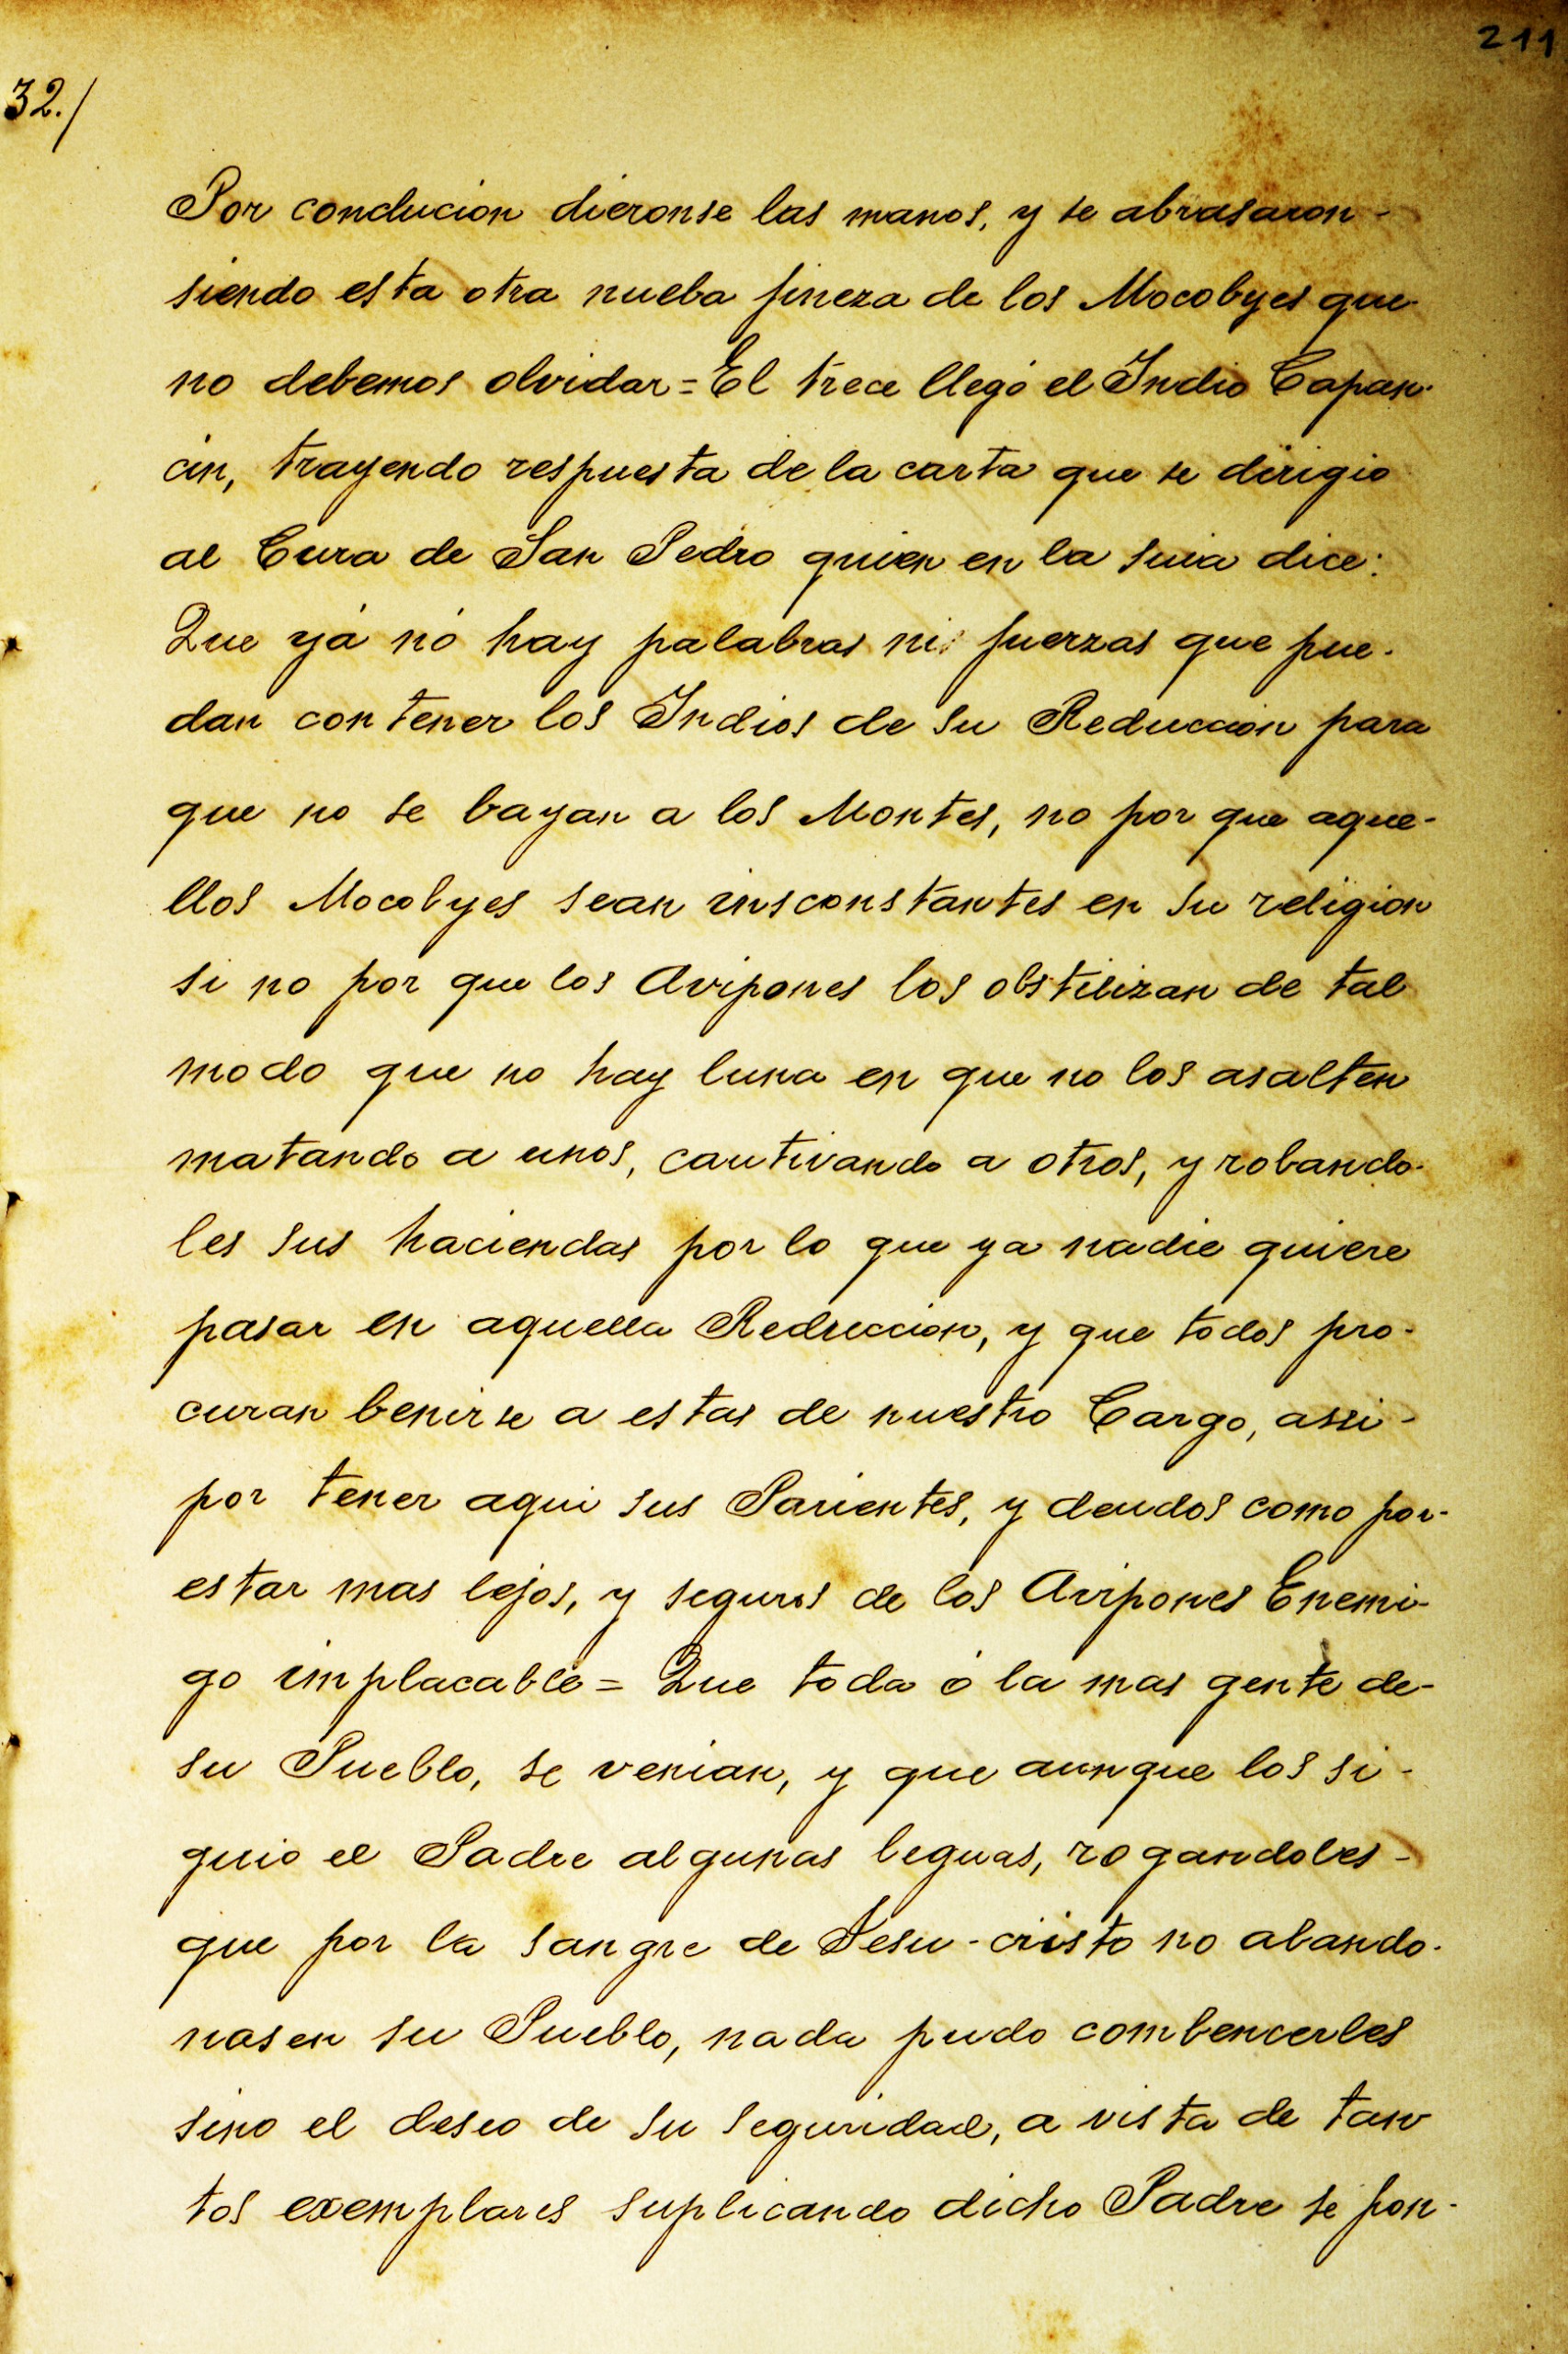 211
32./
Por conclucion dieronse las manos, y se abrasaron -
siendo esta otra nueba fineza de los Mocobyes que
no debemos olvidar = El trece llegó el Indio Capan-
cin, trayendo respuesta de la carta que se dirigio
al Cura de San Pedro quien en la suia dice:
Que yá nó hay palabras ni fuerzas que pue-
dan contener los Indios de su Reduccion para
que no se bayan a los Montes, no por que aque-
llos Mocobyes sean insconstantes en su religion
si no por que los Avipones los obstilizan de tal
modo que no hay luna en que no los asalten
matando a unos, cautivando a otros, y robando-
les sus haciendas por lo que ya nadie quiere
pasar en aquella Reduccion, y que todos pro-
curan benirse a estas de nuestro Cargo, assi -
por tener aqui sus Parientes, y deudos como por-
estar mas lejos, y seguros de los Avipones Enemi-
go implacable = Que toda ó la mas gente de-
su Pueblo, se venian, y que aunque los si-
guio el Padre algunas leguas, rogandoles -
que por la sangre de Jesu-cristo no abando-
nasen su Pueblo, nada pudo combencerles
sino el deseo de su seguridad, a vista de tan
tos exemplares suplicando dicho Padre se pon-